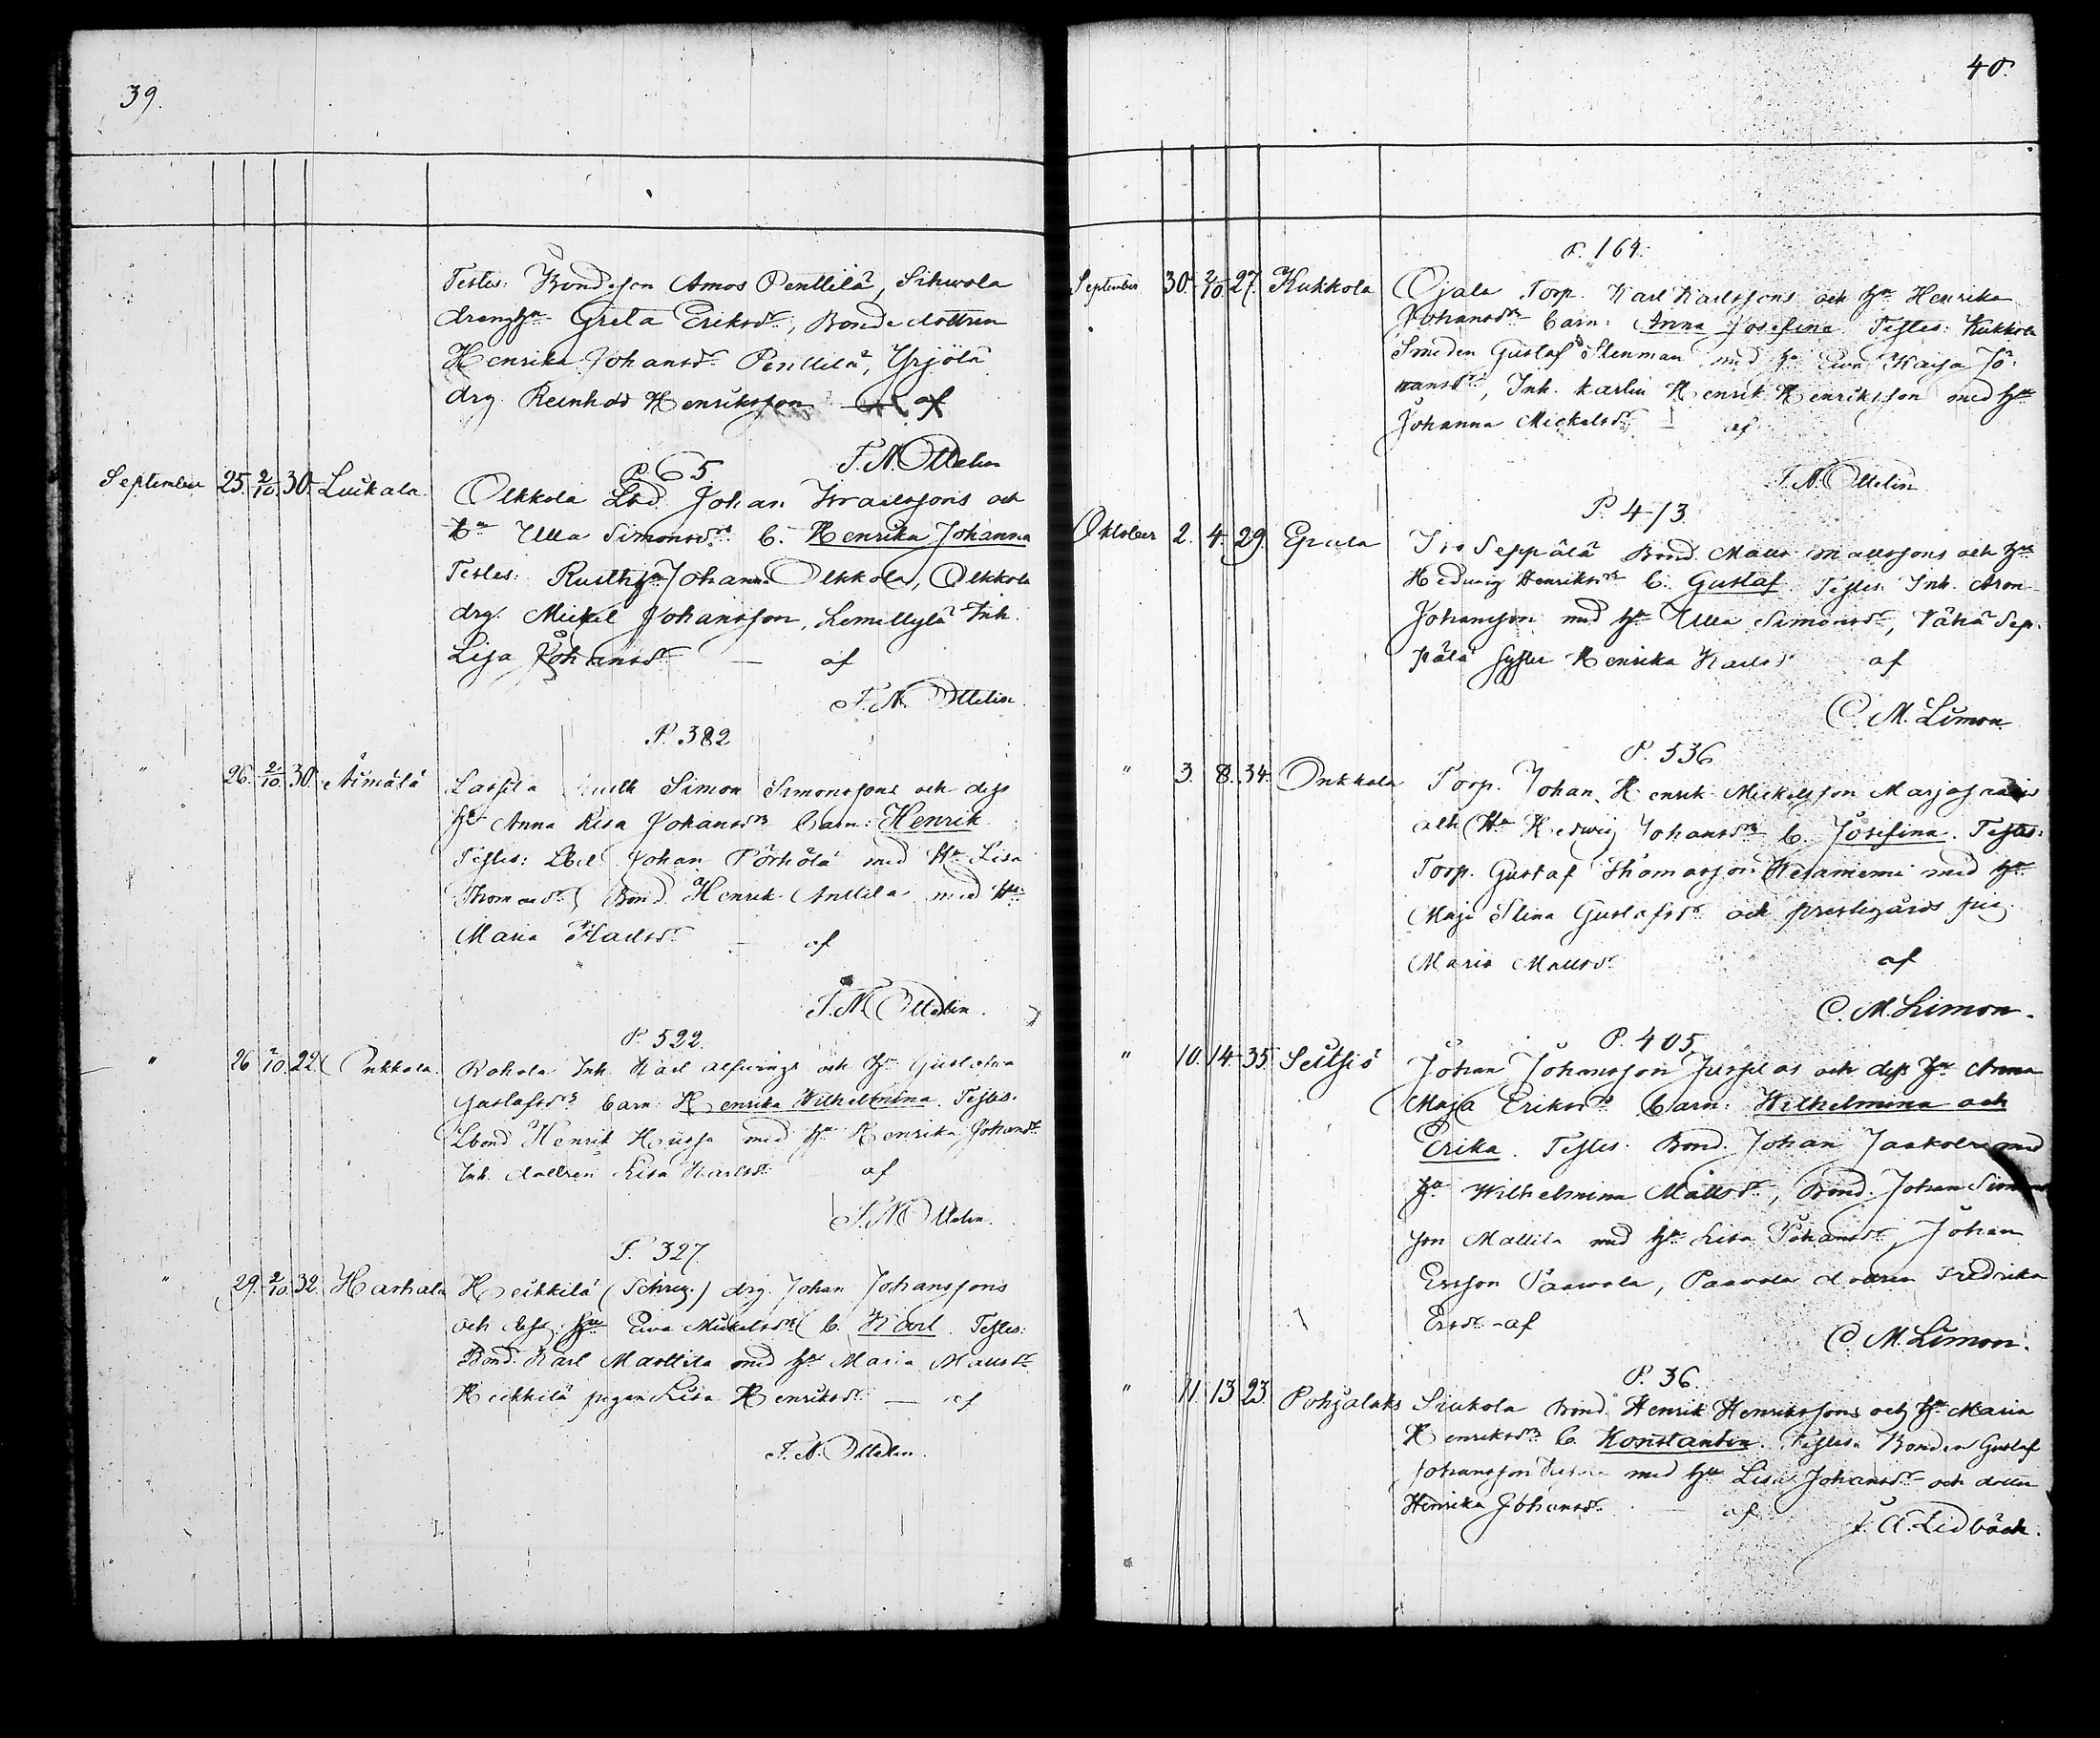 39.
Testes: Bondeson Amos Penttilä, Sihwola
drenghu Greta Eriksdr, Bondedottren
Henrika Johansdr Penttilä, Yrjölä
drg Reinhold Henriksson af
F. N. Ottelin
P. 65
September 25. 2/10. 30. Luikala. Olkkola Lbd Johan Israelssons och
hu Ulla Simonsdrs b. Henrika Johanna
Testes: Rusth hu Johanna Olkkola, Olkkola
drg. Mickel Johansson, Lemettylä Inh.
Lisa Johansdr — af
F. N. Ottelin
P. 382
" 26. 2/10. 30. Äimälä Lassila Rusth Simon Simonssons och dess
hu Anna Lisa Johansdrs barn: Henrik
Testes: Lbd Johan Pörhölä med hu Lisa
Thomasdr, Bond Henrik Anttila med hu
Maria Karlsdr — af
F. N. Ottelin.
P. 522.
" 26 2/10. 22. Onkkola. Rohola Inh. Karl Alfwings och hu Gustafwa
Gustafsdrs barn: Henrika Wilhelmina. Testes.
Lbond Henrik med hu Henrika Johansdr
Inh. dottren Lisa Karlsdr af
F. N. Ottelin.
P. 327.
" 29. 2/10. 32. Harhala Heikkilä (Schreg.) drg. Johan Johanssons
och dess hu Ewa Mickelsdrs b. Karl. Testes:
Bond. Karl Marttila med hu Maria Mattsdr
Heikkilä pigan Lisa Henriksdr — af
F. N. Ottelin.
40.
P. 164.
September 30. 2/10. 27. Kukkola Ojala Torp. Karl Karlssons och hu Henrika
Johansdrs barn: Anna Josefina Testes: Kukkola
Smeden Gustaf Stenman med hu Ewa Kajsa Jo-
hansdr, Inh. karlen Henrik Henriksson med hu
Johanna Mickelsdr — af
F. N. Ottelin
P. 473
Oktober 2. 4. 29. Eputa Iso Seppälä Bond. Matts Mattssons och hu
Hedwig Henriksdrs b. Gustaf Testes Inh. Aron
Johansson med hu Ulla Simonsdr, Vähä Sep-
pälä syster Henrika Karlsdr af
C. M. Limon
P. 536
" 3. 8. 34. Onkkola Torp. Johan Henrik Mickelsson Marjasaaris
och hu Hedwig Johansdrs b. Josefina. Testes:
Torp. Gustaf Thomasson med hu
Maja Stina Gustafsdr och prestegårds pig.
Maria Mattsdr af
C. M. Limon.
P. 405
" 10. 14. 35. Seitsiö Johan Johansson Jussilas och dess hu Anna
Maja Eriksdrs barn: Wilhelmina och
Erika. Testes: Bond. Johan Jaakola med
hu Wilhelmina Mattsdr, Bond. Johan Simons
son Mattila med hu Lisa Johansdr, Johan
Ersson Paawola, Paavola dottren Fredrika
Ersdr - af
C. M. Limon.
P. 36.
" 11. 13 23. Pohjalaks Siukola Bond. Henrik Henrikssons och hu Maria
Henriksdrs b. Konstantin. Testes: Bonden Gustaf
Johansson med hu Lisa Johansdr och dotter
Henrika Johansdr. af
J. A. Lidbäck.